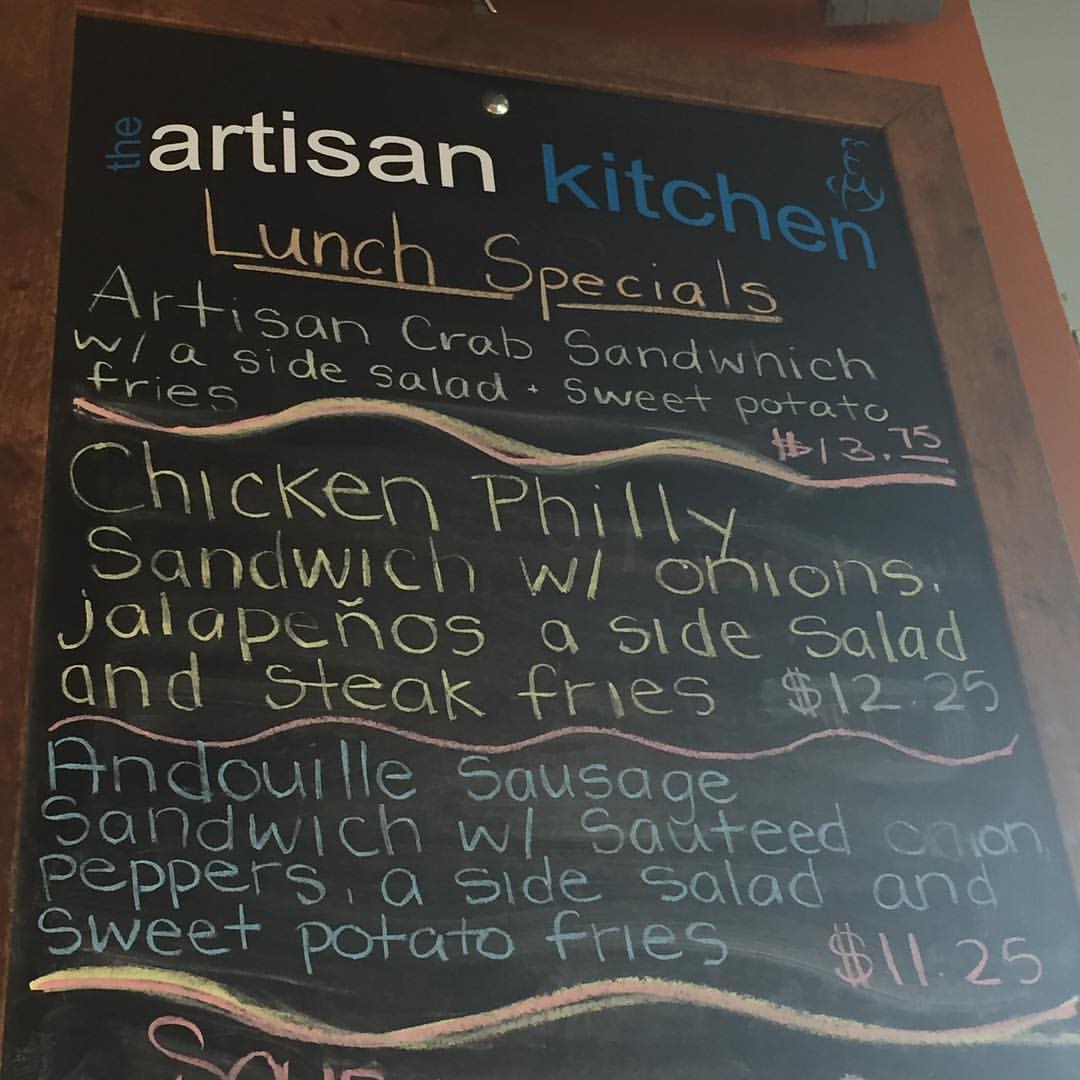 the artisan kitchen
Lunch Specials
Artisan Crab Sandwhich
w/ a side salad + sweet potato
fries
$13.75
Chicken Philly
Sandwich w/ onions,
jalapeños a side Salad
and steak fries $12.25
Andouille Sausage
Sandwich w/ Sauteed onion,
peppers, a side salad and
sweet potato fries $11.25
Soup